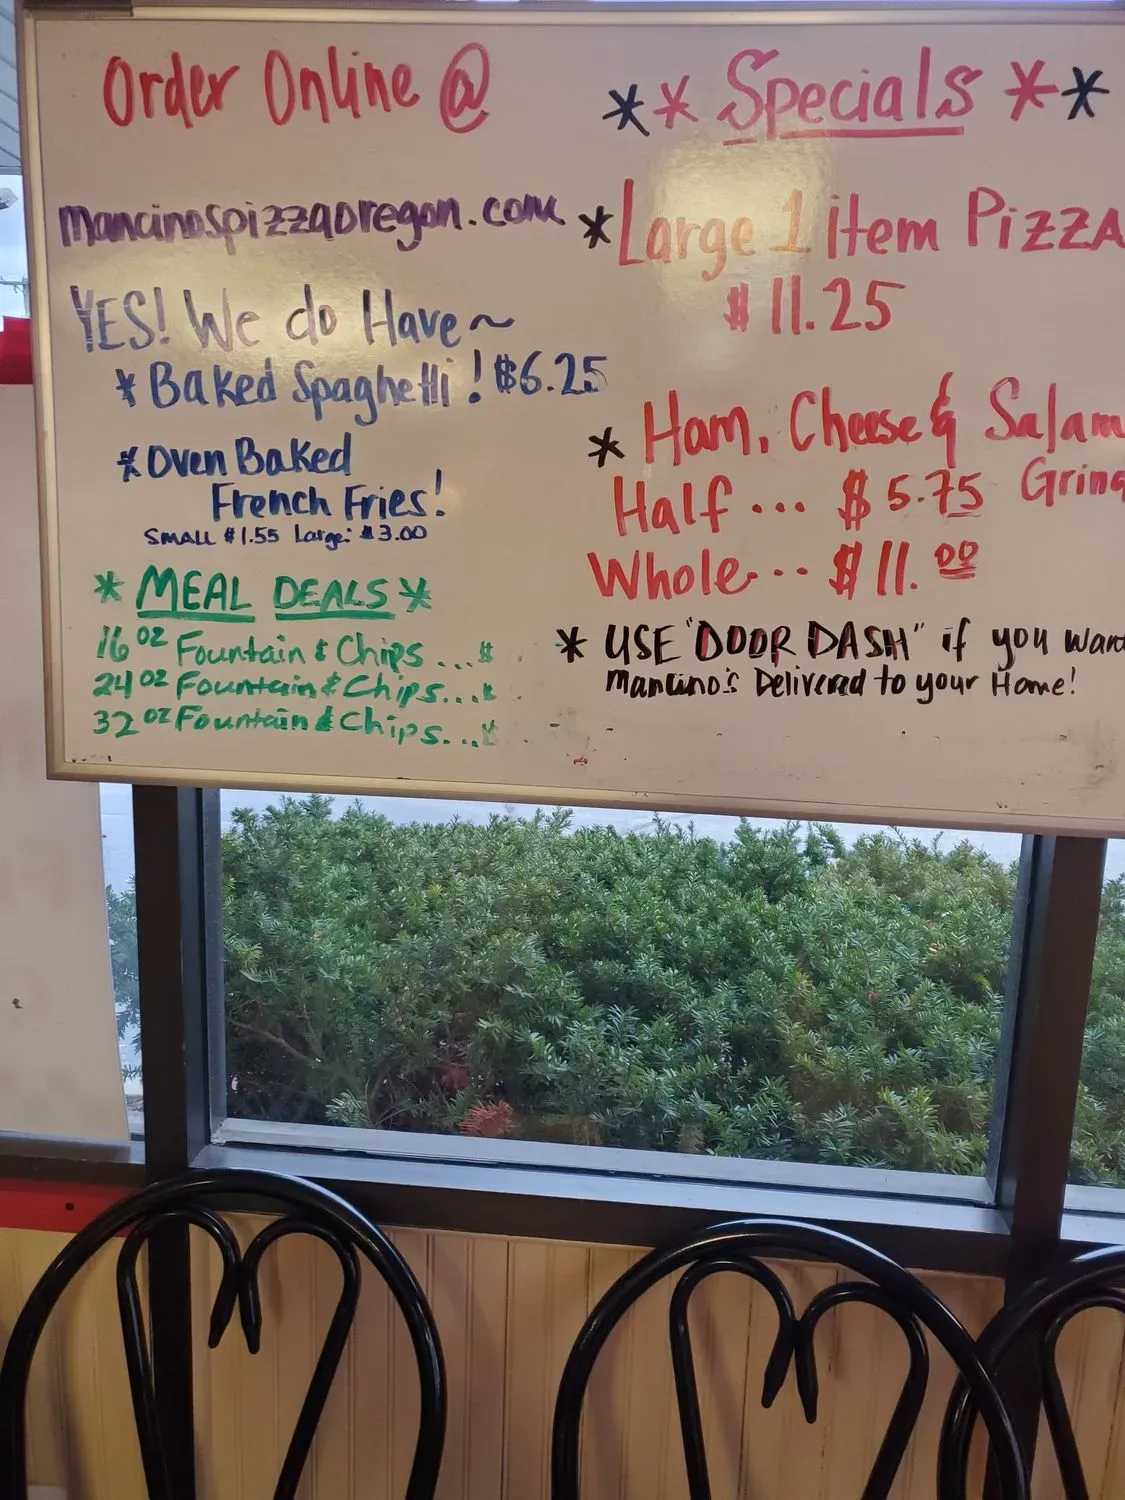 Order Online @
mancinospizzaoregon.com
YES! We do Have~
* Baked Spaghetti! $6.25
* Oven Baked
French Fries!
SMALL $1.55 Large: $3.00
* MEAL DEALS *
16 oz Fountain & Chips...$
24 oz Fountain & Chips...$
32 oz Fountain & Chips...$
** Specials **
* Large 1 item PIZZA
$11.25
* Ham, Cheese & Salam
Grin
Half... $5.75
Whole... $11.00
* USE "DOOR DASH" if you Wan
Mancino's Delivered to your Home!